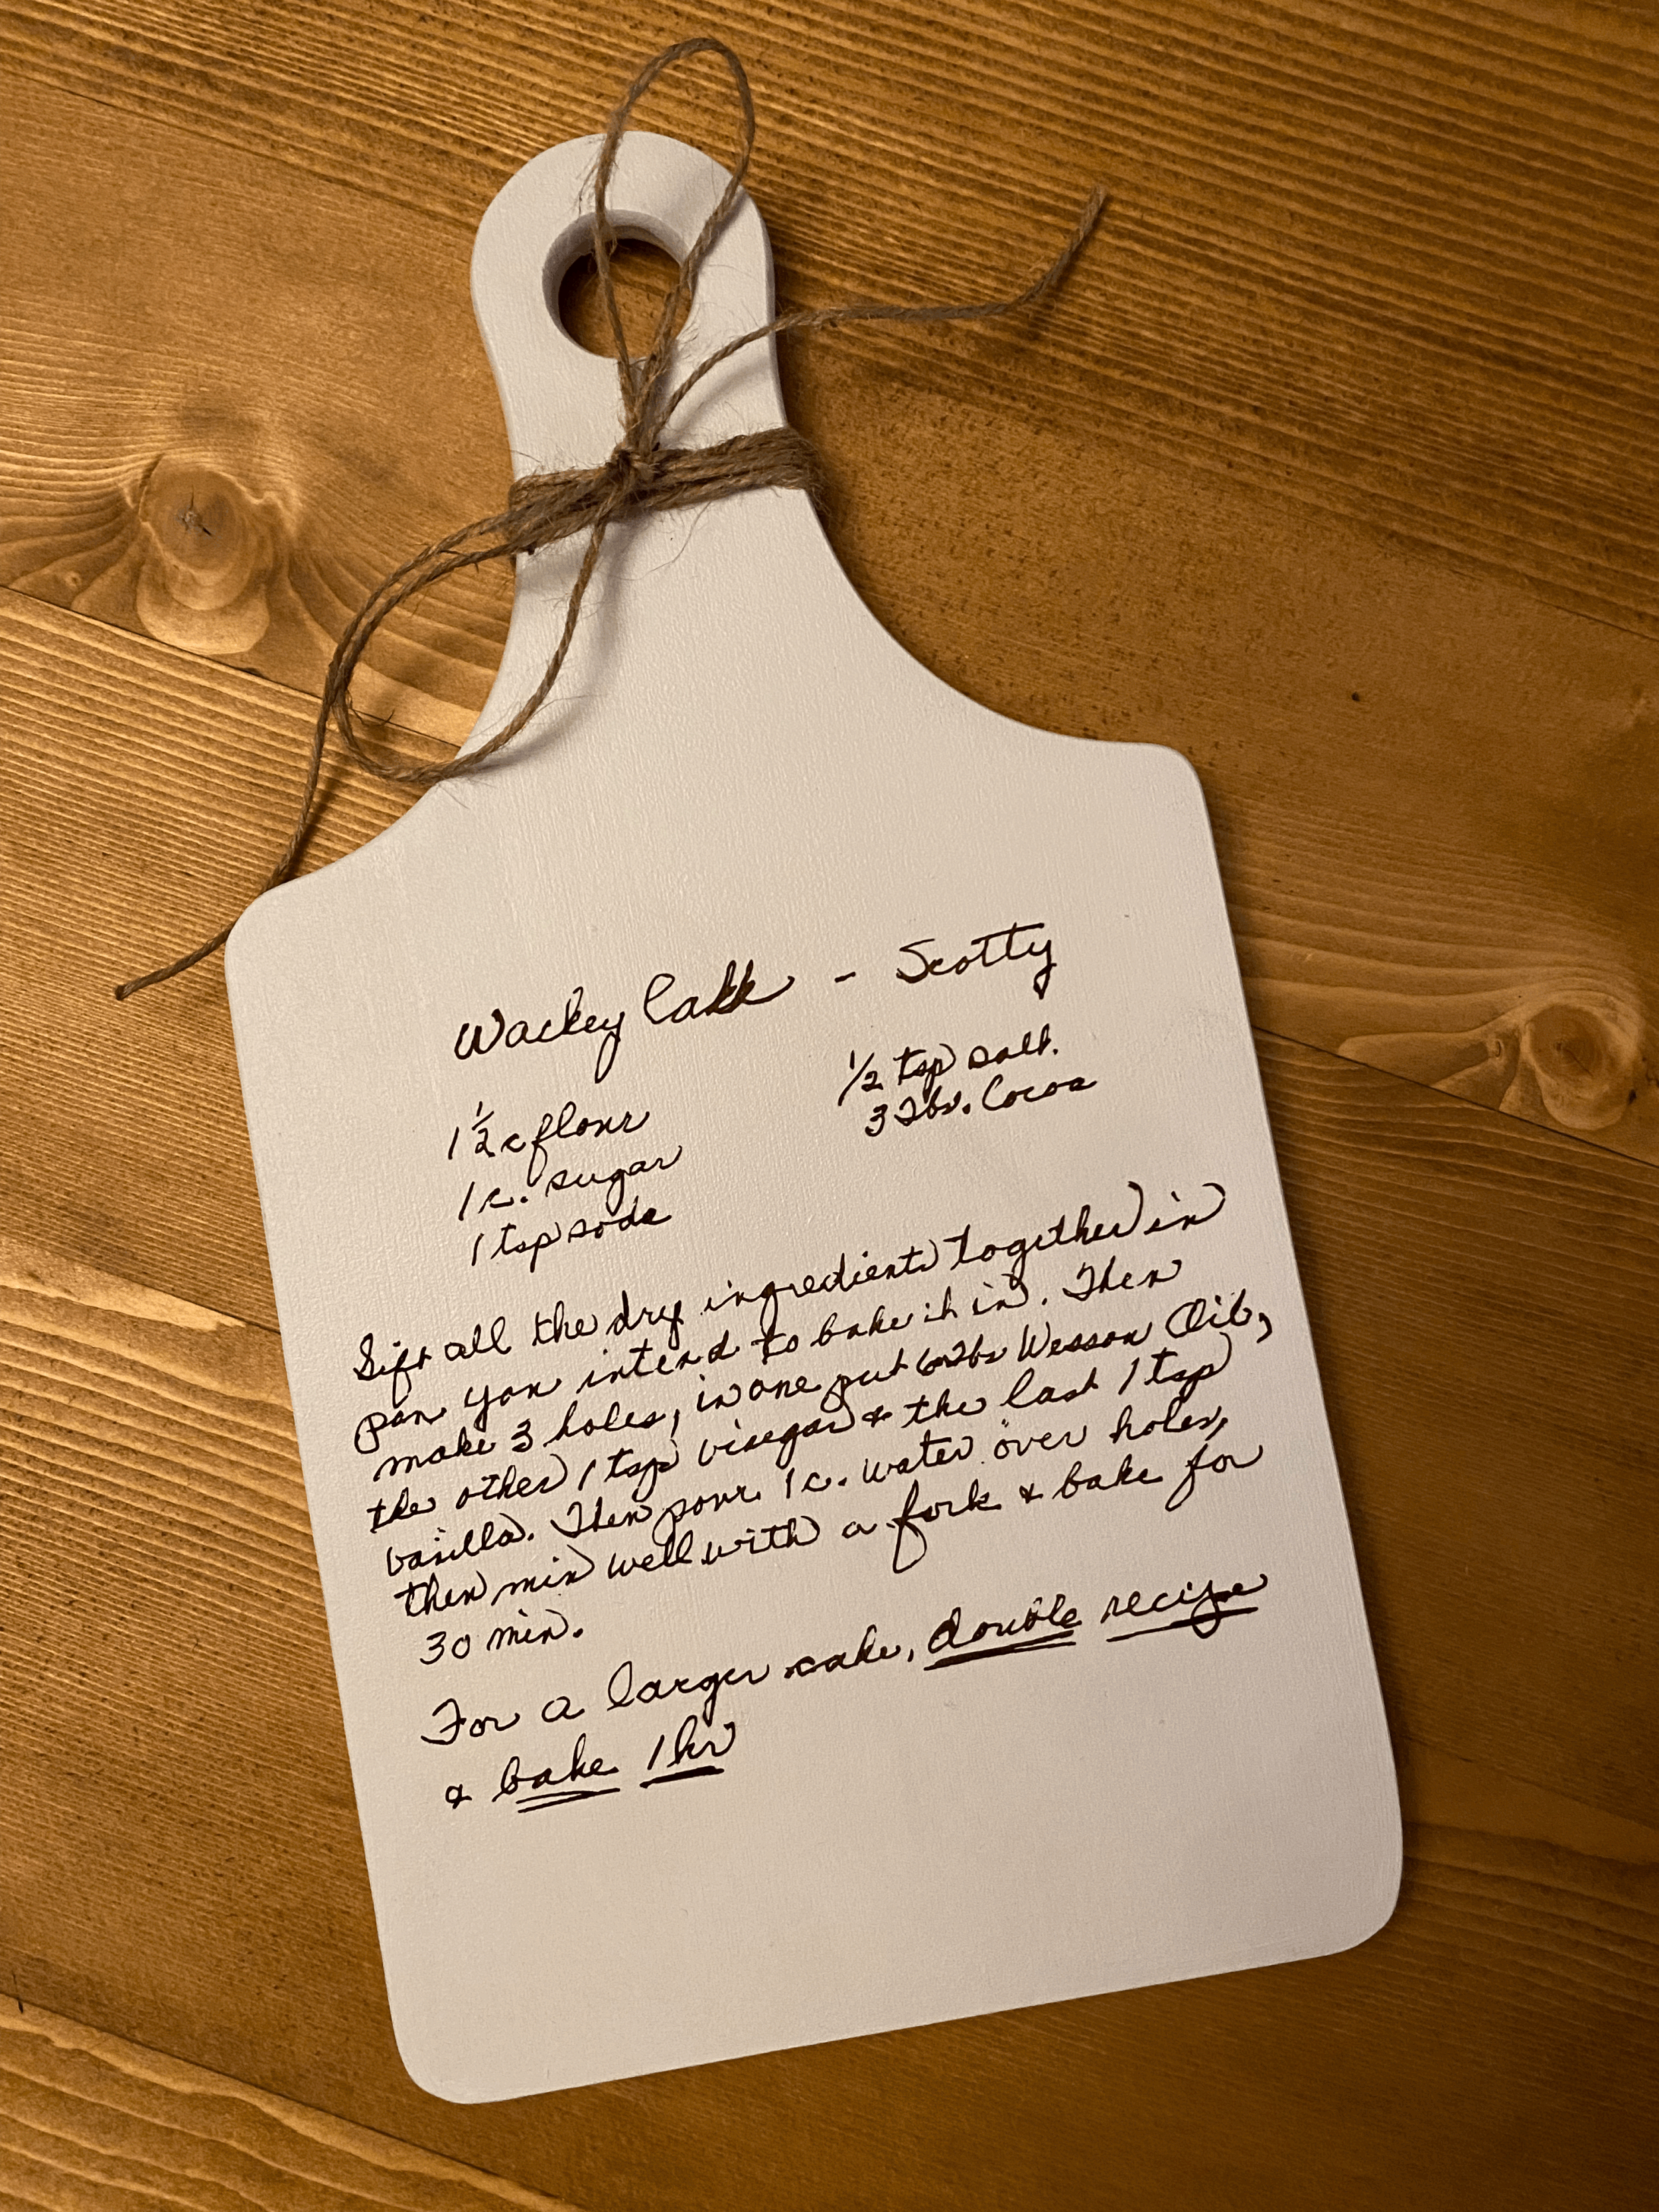 Wackey Cake - Scotty
1 1/2 c flour
1 c. sugar
1 tsp soda
1/2 tsp salt.
3 Tbs. Cocoa
Sift all the dry ingredients together in
pan you intend to bake it in. Then
make 3 holes, in one put 6 Tbs Wesson Oil,
the other 1 tsp vinegar & the last 1 tsp
vanilla. Then pour 1 c. water over holes,
then mix well with a fork & bake for
30 min.
For a larger cake, double recipe
& bake 1 hr